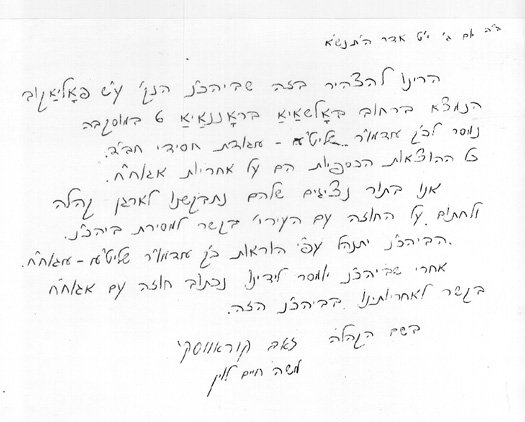 ב"ה יום ג' י"ט אדר ה'תנש"א
הרינו להצהיר בזה שביהכ"נ הנק' ע"ש פאליאקוב
הנמצא ברחוב באלשאיא בראננאיא 6 במוסקבה
נמסר לכ"ק אדמו"ר שליט"א - אגודת חסידי חב"ד.
כל ההוצאות הכספיות הם על אחריות אגוח"ח.
אנו בתור נציגים שלהם נתבקשנו לארגן קהלה
ולחתום על החוזה עם העירי' בקשר למסירת ביהכ"נ.
הביהכ"נ יתנהל עפ"י הוראות כ"ק אדמו"ר שליט"א - אגוח"ח.
אחרי שביהכ"נ ימסר לידינו נכתוב חוזה עם אגוח"ח
בקשר לאחריותינו בביהכ"נ הזה.
בשם הקהלה זאב קוראווסקי
משה חיים לוין